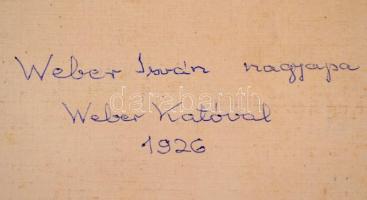 Weber Iván nagyapa
Weber Katóval
1926
darabanth